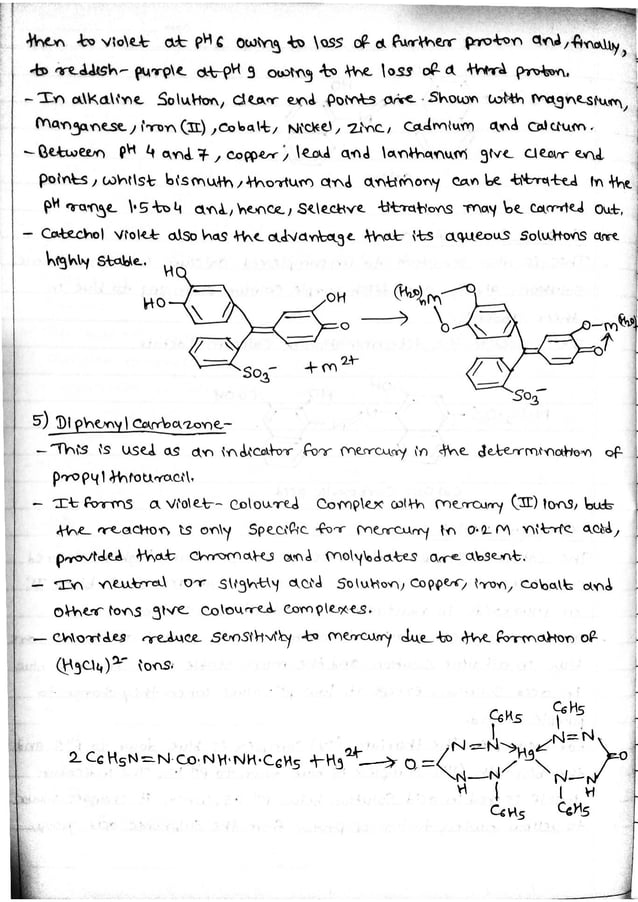 then to violet at pH 6 owing to loss of a further proton and, finally,
to reddish-purple at pH 9 owing to the loss of a third proton.
- In alkaline Solution, clear end points are shown with magnesium,
manganese, iron (II), cobalt, Nickel, Zinc, Cadmium and Calcium.
- Between pH 4 and 7, copper, lead and lanthanum give clear end
points, whilst bismuth, thorium and antimony can be titrated in the
pH range 1.5 to 4 and, hence, selective titrations may be carried out.
- Catechol violet also has the advantage that its aqueous solutions are
highly stable.
HO
HO
OH
O
SO3-
+ m2+
(H2O)n M
O
O
O-m(H2O)
O
SO3-
5) Diphenyl Carbazone-
- This is used as an indicator for mercury in the determination of
propylthiouracil.
- It forms a violet-coloured Complex with mercury (II) Ions, but
the reaction is only Specific for mercury in 0.2 M nitric acid,
provided that chromates and molybdates are absent.
- In neutral or slightly acid solution, copper, iron, cobalt and
other ions give coloured complexes.
- Chlorides reduce sensitivity to mercury due to the formation of
(HgCl4)2- ions.
2 C6H5N=N·CO·NH·NH·C6H5 + Hg2+ → O=
C6H5
N=N
N-N
H
C6H5
Hg
C6H5
N=N
N-N
H
C6H5
=O